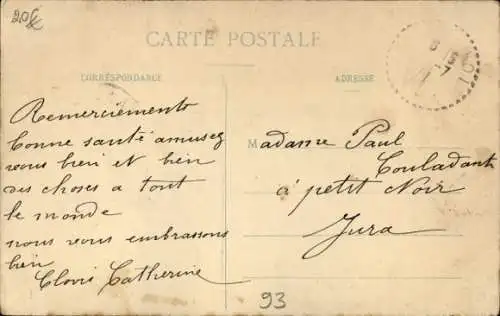 20f
CARTE POSTALE
CORRESPONDANCE
ADRESSE
Remerciements
bonne santé amusez
vous bien et bien
des choses a tout
le monde
nous vous embrassons
bien
Clovis Catherine
Madame Paul
Couladant
à petit Noir
Jura
93